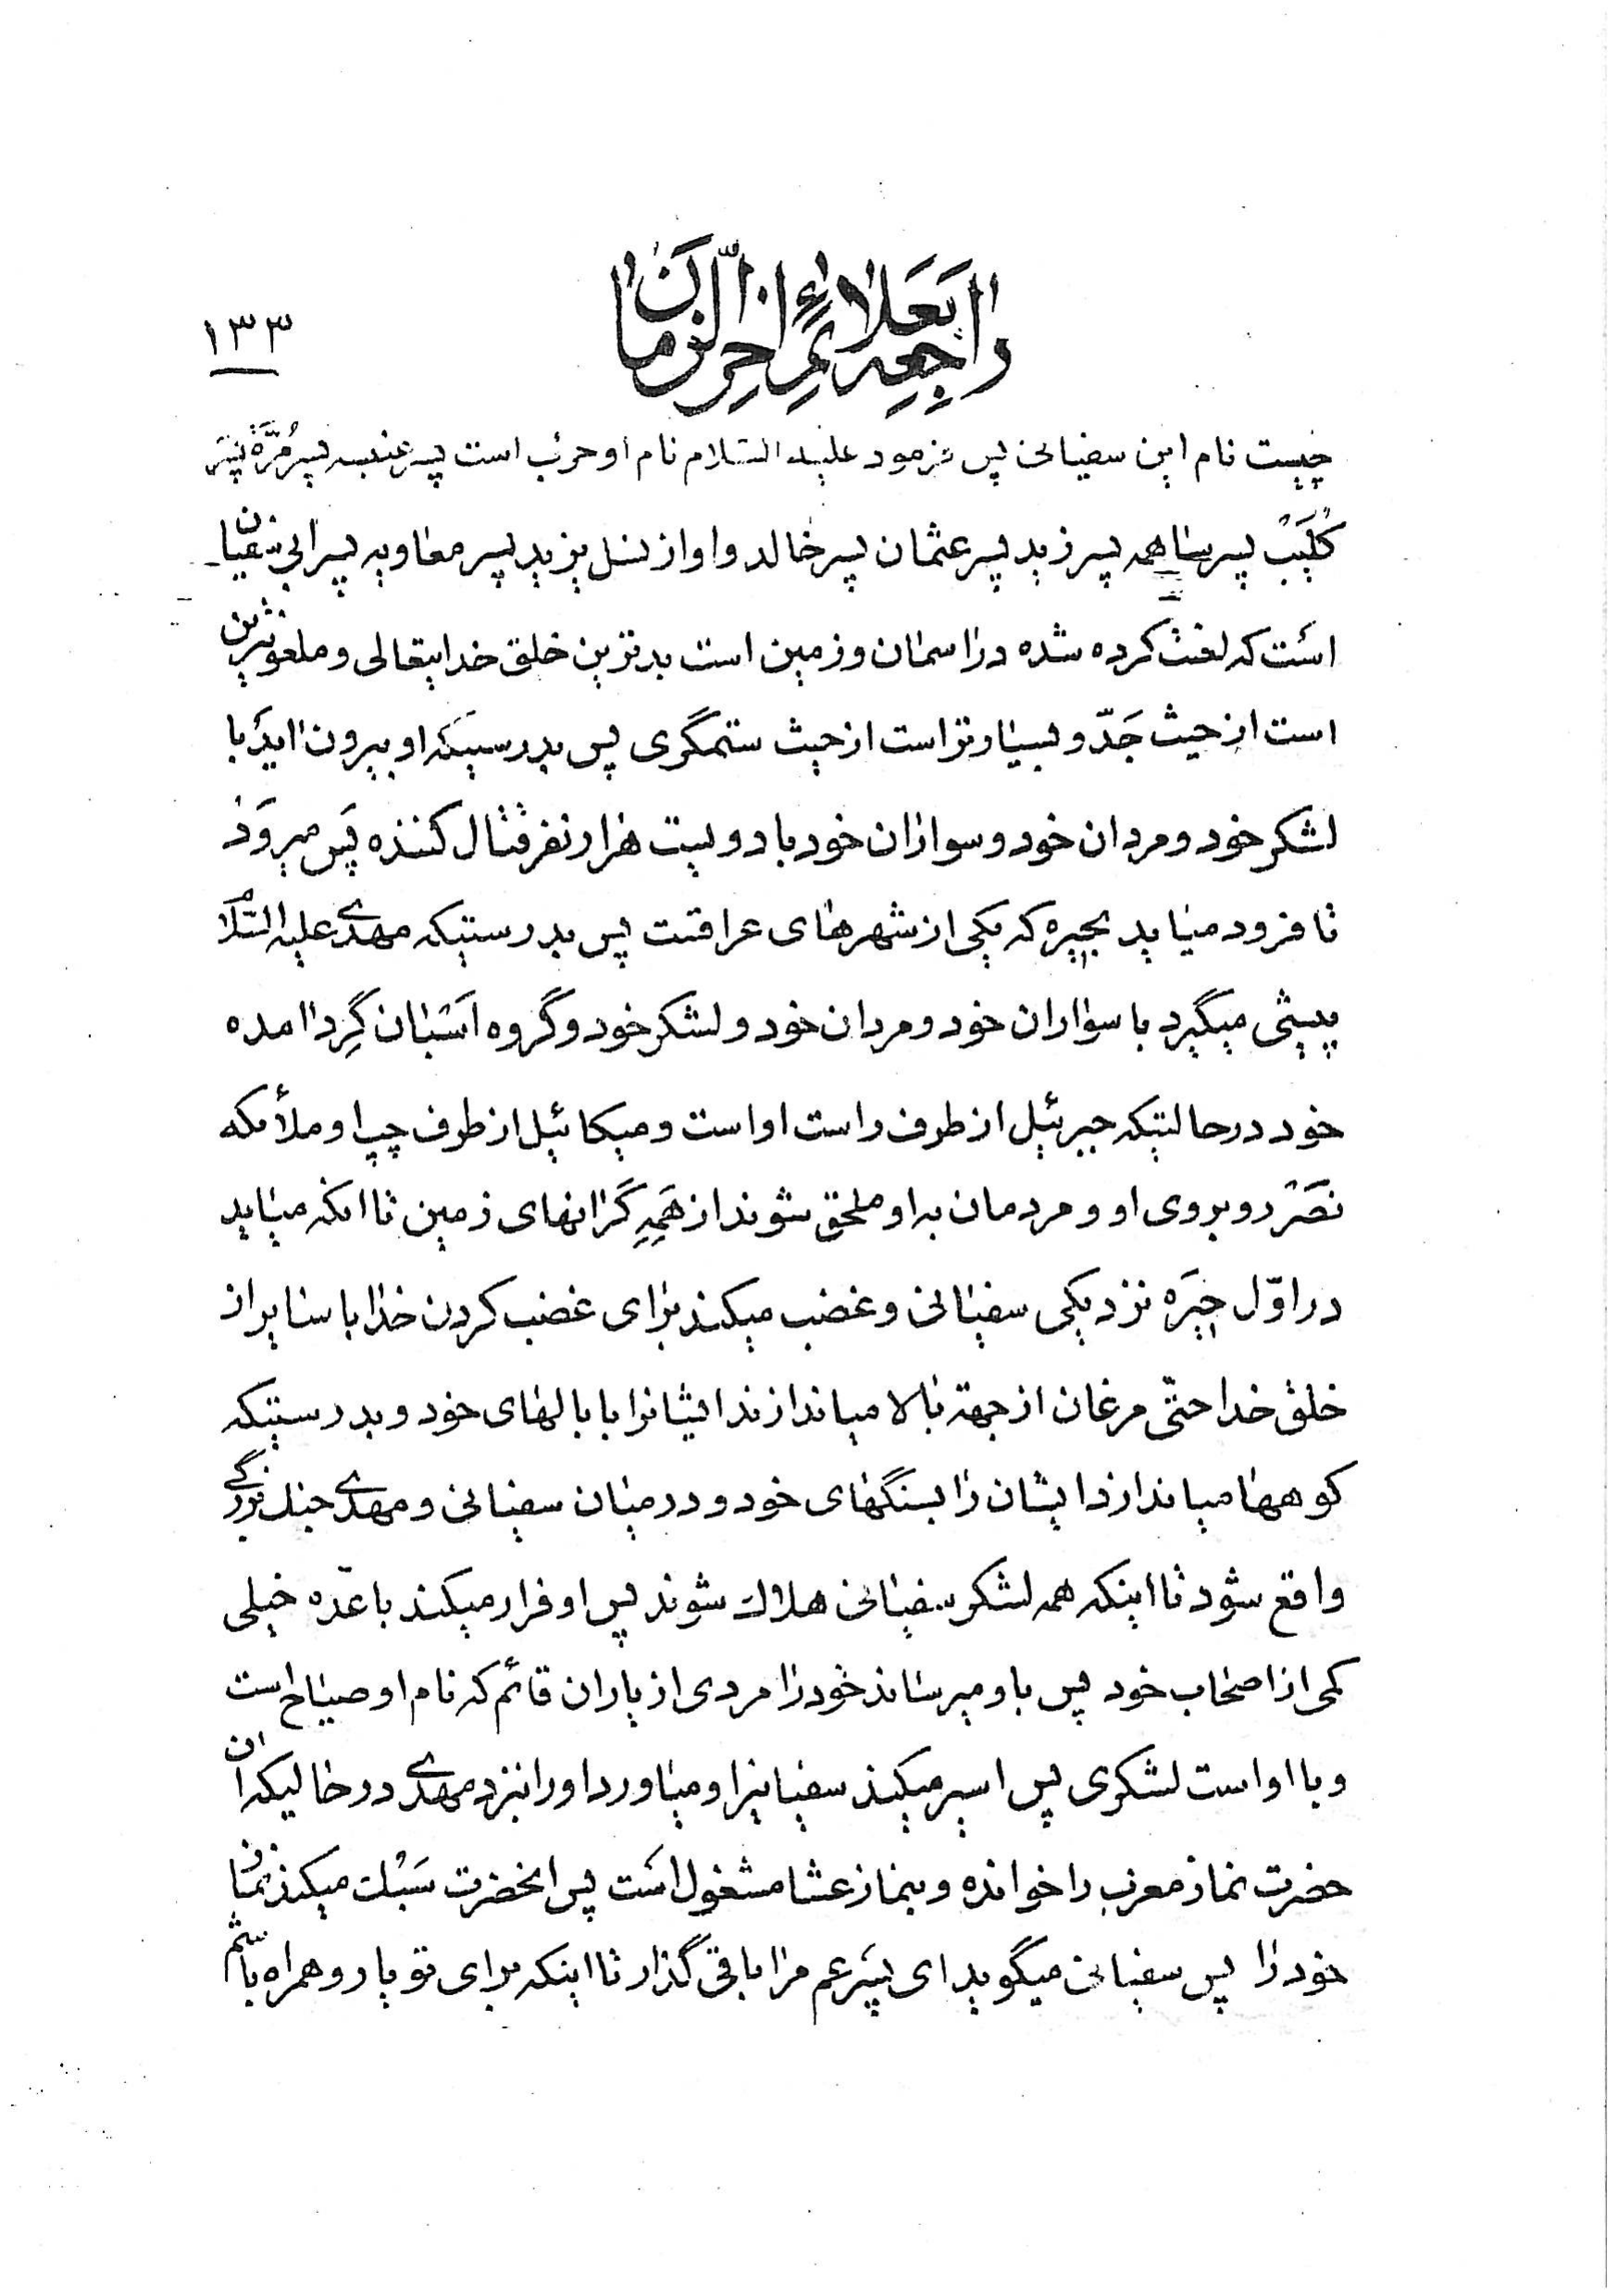 راجعه بعلائم اخر الزّمان
۱۳۳
چیست نام این سفیانی پس فرمود علیه السّلام نام او حرب است پسر عنبسه پسر مُرَّة پسر
کُلَیْب پسر ساهمه پسر زید پسر عثمان پسر خالد و او از نسل یزید پسر معاویه پسر ابی سفیان
است که لعنت کرده شده در اسمان و زمین است بدترین خلق خدایتعالی و ملعونترین
است از حیث جَدّ و بسیارتر است از حیث ستمگری پس بدرستیکه او بیرون اید با
لشکر خود و مردان خود و سواران خود با دویست هزار نفر قتال کننده پس میرَوَد
تا فرود میاید بحیره که یکی از شهرهای عراقست پس بدرستیکه مهدی علیه السّلام
پیشی میگیرد با سواران خود و مردان خود و لشکر خود و گروه اسبان گِرد امده
خود در حالتیکه جبرئیل از طرف راست او است و میکائیل از طرف چپ او و ملائکه
نَصْر روبروی او و مردمان به او ملحق شوند از هَمِهِ کَرانهای زمین تا انکه میاید
در اوّل حیَره نزدیکی سفیانی و غضب میکند برای غضب کردن خدا با سایر از
خلق خدا حتّی مرغان از جهة بالا میاندازند ایشانرا با بالهای خود و بدرستیکه
کوهها میاندازد ایشان را بسنگهای خود و در میان سفیانی و مهدی جنک بزرگی
واقع شود تا اینکه همه لشکر سفیانی هلاك شوند پس او فرار میکند با عدّه خیلی
کمی از اصحاب خود پس باو میرساند خود را مردی از یاران قائم که نام او صیاح است
و با او است لشکری پس اسیر میکند سفیانیرا و میاورد او را نزد مهدی در حالیکه ان
حضرت نماز مغرب را خوانده و بنماز عشا مشغول است پس انحضرت سَبْك میکند نماز
خود را پس سفیانی میگوید ای پسَر عم مرا باقی گذار تا اینکه برای تو یار و همراه باشم